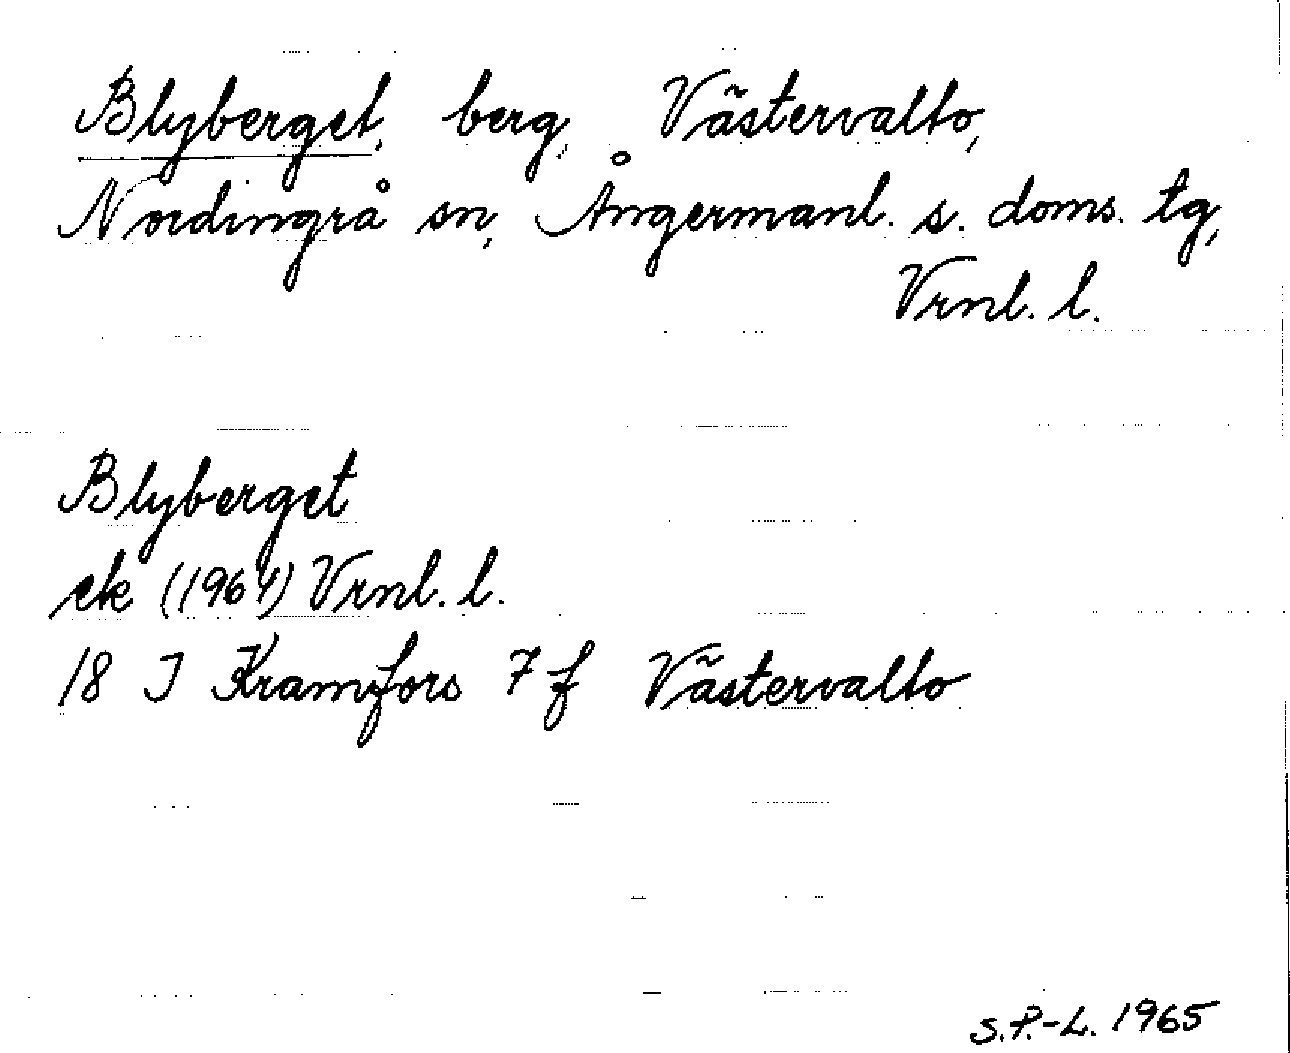 Blyberget, berg, Västervalto,
Nordingrå sn, Ångermanl. s. doms. tg,
Vrnl. l.
Blyberget
ek (1961) Vrnl. l.
18 I Kramfors 7 f Västervalto
S.P.-L. 1965